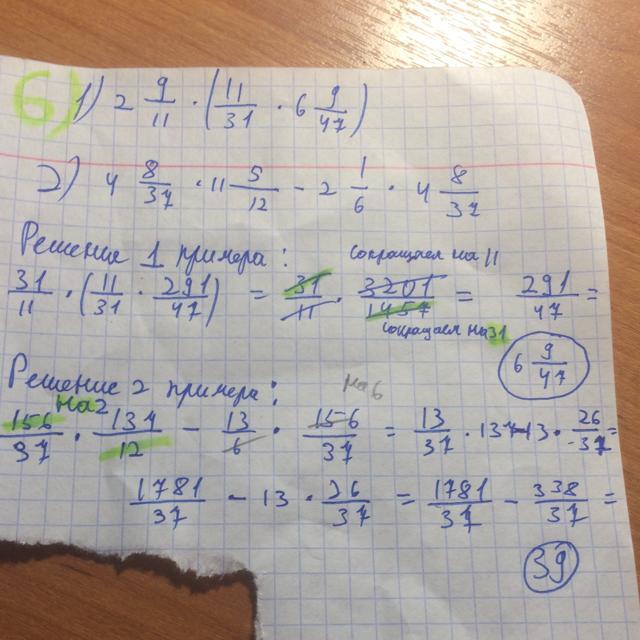 6) 1) 2 9/11 · (11/31 · 6 9/47)
2) 4 8/37 · 11 5/12 - 2 1/6 · 4 8/37
Решение 1 примера: сокращаем на 11
31/11 · (11/31 · 291/47) = 31/11 · 3201/1457 = 291/47 =
сокращаем на 31
6 9/47
Решение 2 примера: на 6
на 2
156/37 · 137/12 - 13/6 · 156/37 = 13/37 · 137 - 13 · 26/37 =
1781/37 - 13 · 26/37 = 1781/37 - 338/37 =
39